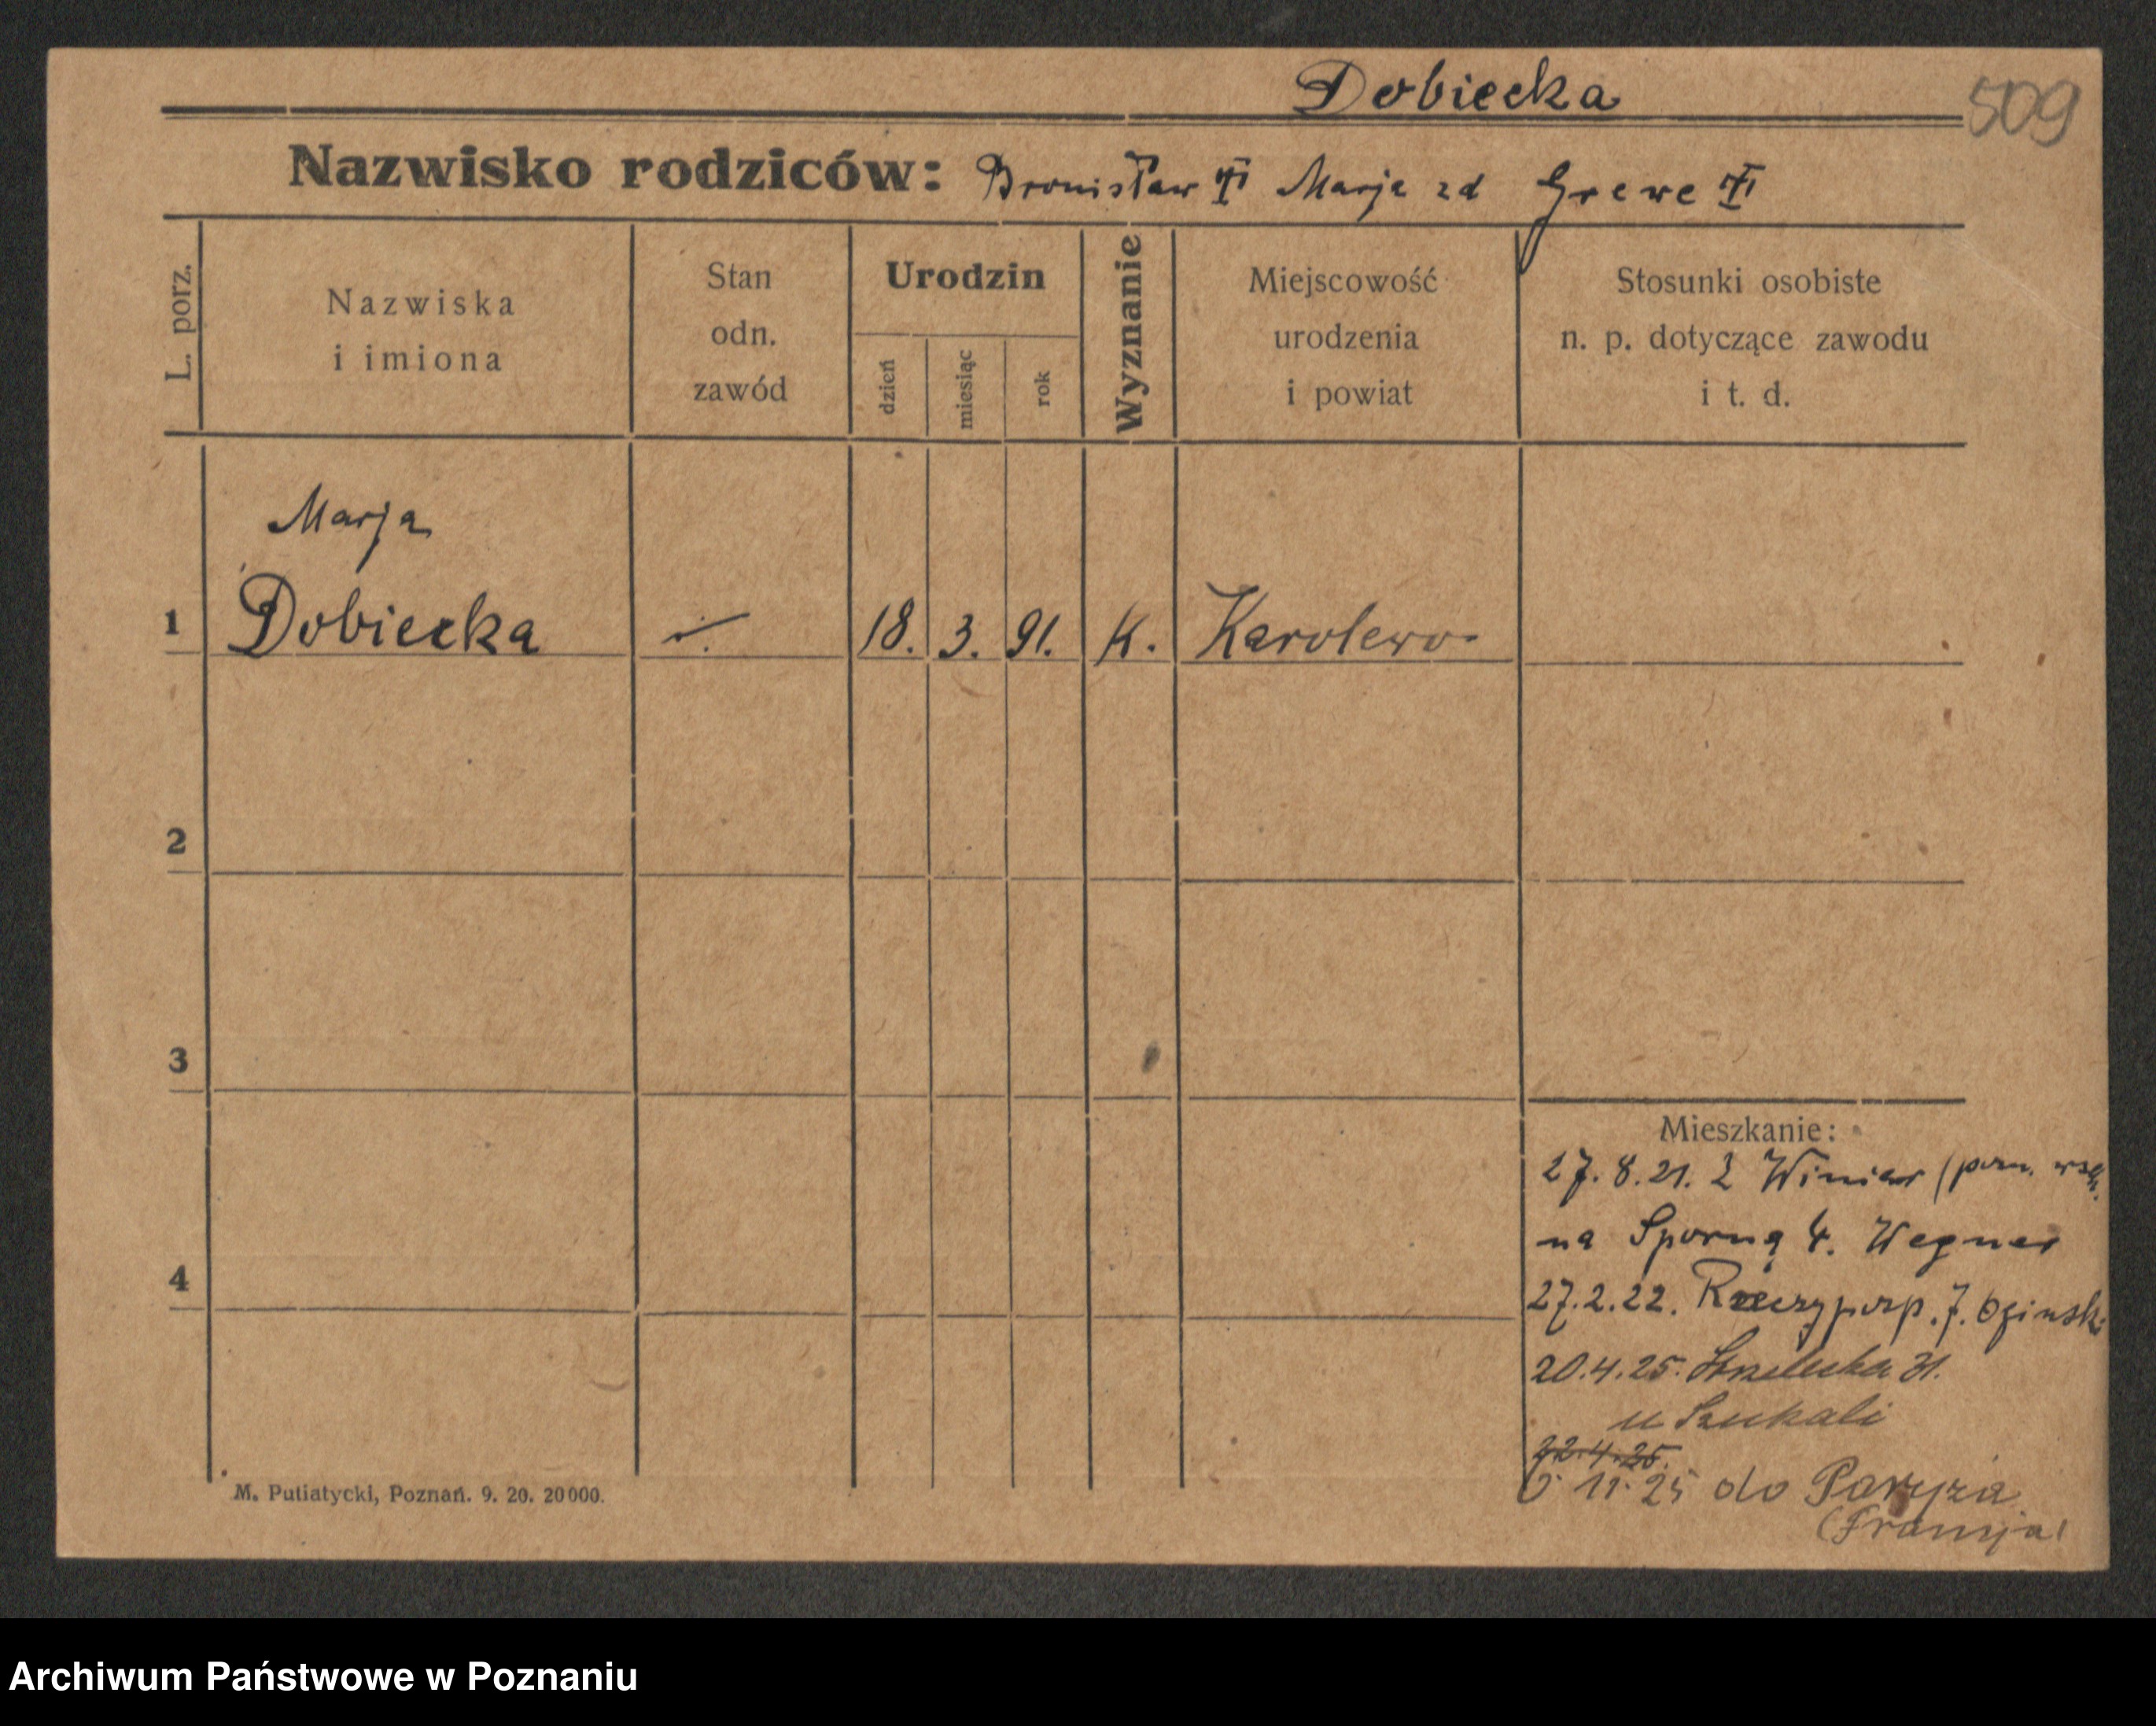 Dobiecka
509
Nazwisko rodziców: Bronisław Marja zd Grewe
L. porz.
Nazwiska
i imiona
Stan
odn.
zawód
Urodzin
dzień
miesiąc
rok
Wyznanie
Miejscowość
urodzenia
i powiat
Stosunki osobiste
n. p. dotyczące zawodu
i t. d.
Marja
1 Dobiecka 18. 3. 91. K. Karolewo
2
3
Mieszkanie:
27.8.21. Z Winiar (pozn. wsch.
na Sporną 4. Wegner
4
27.2.22. Rzeczyposp. 7. Oginski
20.4.25. Strzelecka 31.
u Szukali
22.4.25.
11.25 do Paryża
(Francja)
M. Putiatycki, Poznań. 9. 20. 20000.
Archiwum Państwowe w Poznaniu